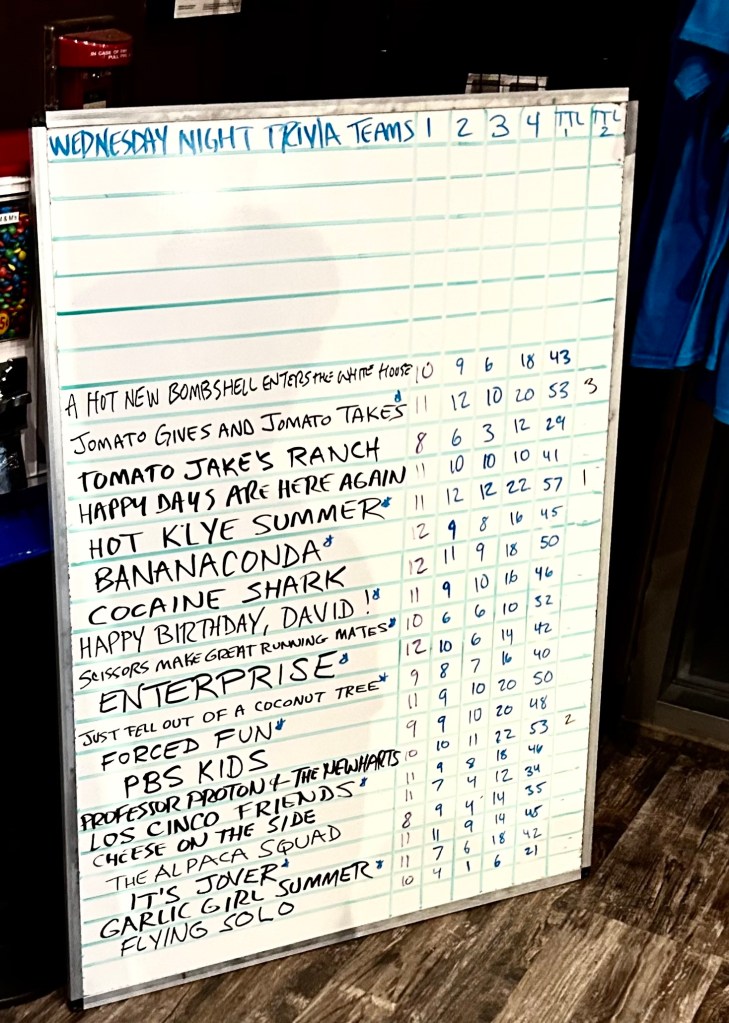 IN CASE OF
PULL
M&M's
WEDNESDAY NIGHT TRIVIA TEAMS 1 2 3 4 TTL 1 TTL 2
A HOT NEW BOMBSHELL ENTERS THE WHITE HOUSE 10 9 6 18 43
JOMATO GIVES AND JOMATO TAKES* 11 12 10 20 53 3
TOMATO JAKE'S RANCH 8 6 3 12 29
HAPPY DAYS ARE HERE AGAIN 11 10 10 10 41
HOT KLYE SUMMER* 11 12 12 22 57 1
BANANACONDA* 12 9 8 16 45
COCAINE SHARK 12 11 9 18 50
HAPPY BIRTHDAY, DAVID!* 11 9 10 16 46
SCISSORS MAKE GREAT RUNNING MATES* 10 6 6 10 32
ENTERPRISE* 12 10 6 14 42
JUST FELL OUT OF A COCONUT TREE* 9 8 7 16 40
FORCED FUN* 11 9 10 20 50
PBS KIDS 9 9 10 20 48
PROFESSOR PROTON & THE NEWHARTS 10 10 11 22 53 2
LOS CINCO FRIENDS* 11 9 8 18 46
CHEESE ON THE SIDE 11 7 4 12 34
THE ALPACA SQUAD 8 9 4 14 35
IT'S JOVER* 11 11 9 14 45
GARLIC GIRL SUMMER* 11 7 6 18 42
FLYING SOLO 10 4 1 6 21